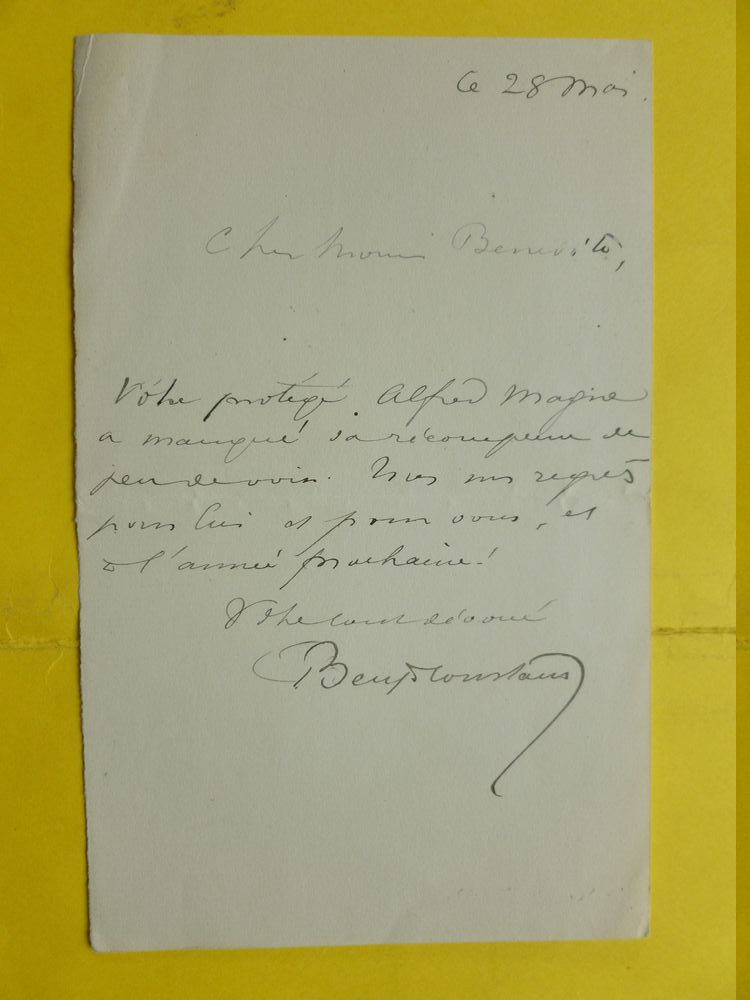 Ce 28 Mai.
Cher Monsieur Benedite,
Vôtre protégé Alfred Magne
a manqué sa récompense de
peu de voix. Tous nos regrets
pour lui et pour vous, et
à l'année prochaine!
Vôtre tout dévoué
Benj Constant